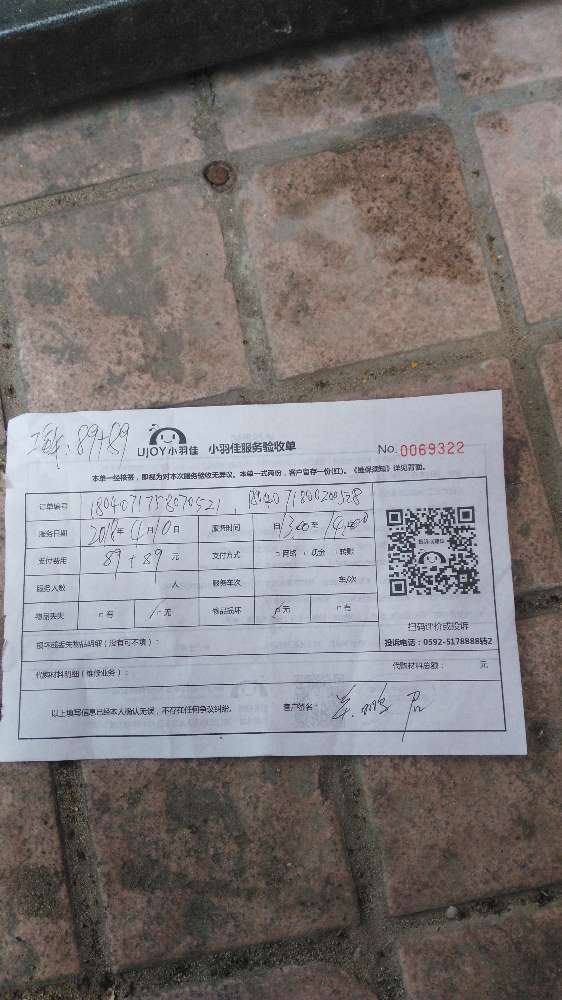 89+89
UJOY小羽佳 小羽佳服务验收单 No. 0069322
本单一经接签，即视为对本次服务验收无异议。本单一式两份，客户留存一份(红)。《维保须知》详见背面。
订单编号
服务日期 2018年4月10日 服务时间 自13:00至
支付费用 89+89元 支付方式 □网络 □现金 □转账
服务人数 人 服务车次 车/次
物品丢失 □有 □无 物品损坏 □无 □有
损坏或丢失物品明细（没有可不填）：
代购材料明细（维修业务）： 代购材料总额： 元
以上填写信息已经本人确认无误，不存在任何争议纠纷。 客户签名：
扫码评价或投诉
投诉电话：0592-5178888转2